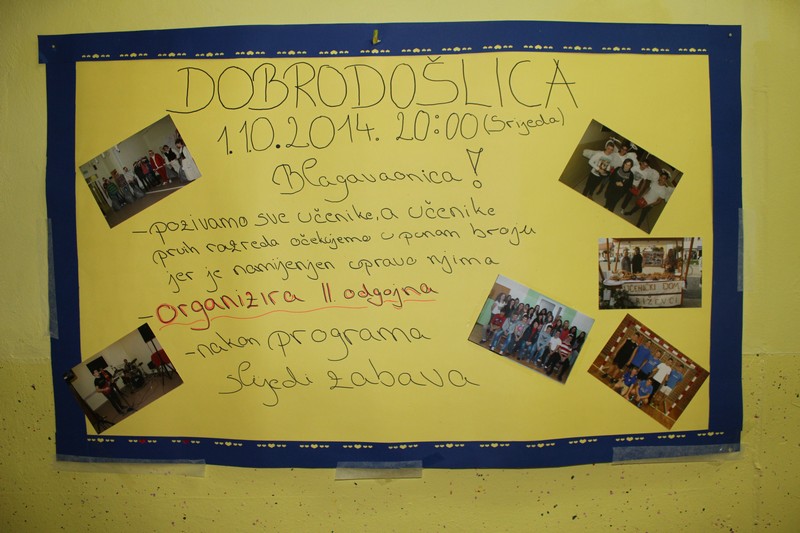 DOBRODOŠLICA
1.10.2014. 20:00 (Srijeda)
Blagavaonica!
- pozivamo sve učenike, a učenike
prvih razreda očekujemo u punom broju
jer je namijenjen upravo njima
- organizira II. odgojna
- nakon programa
slijedi zabava
UČENIČKI DOM
KRIŽEVCI